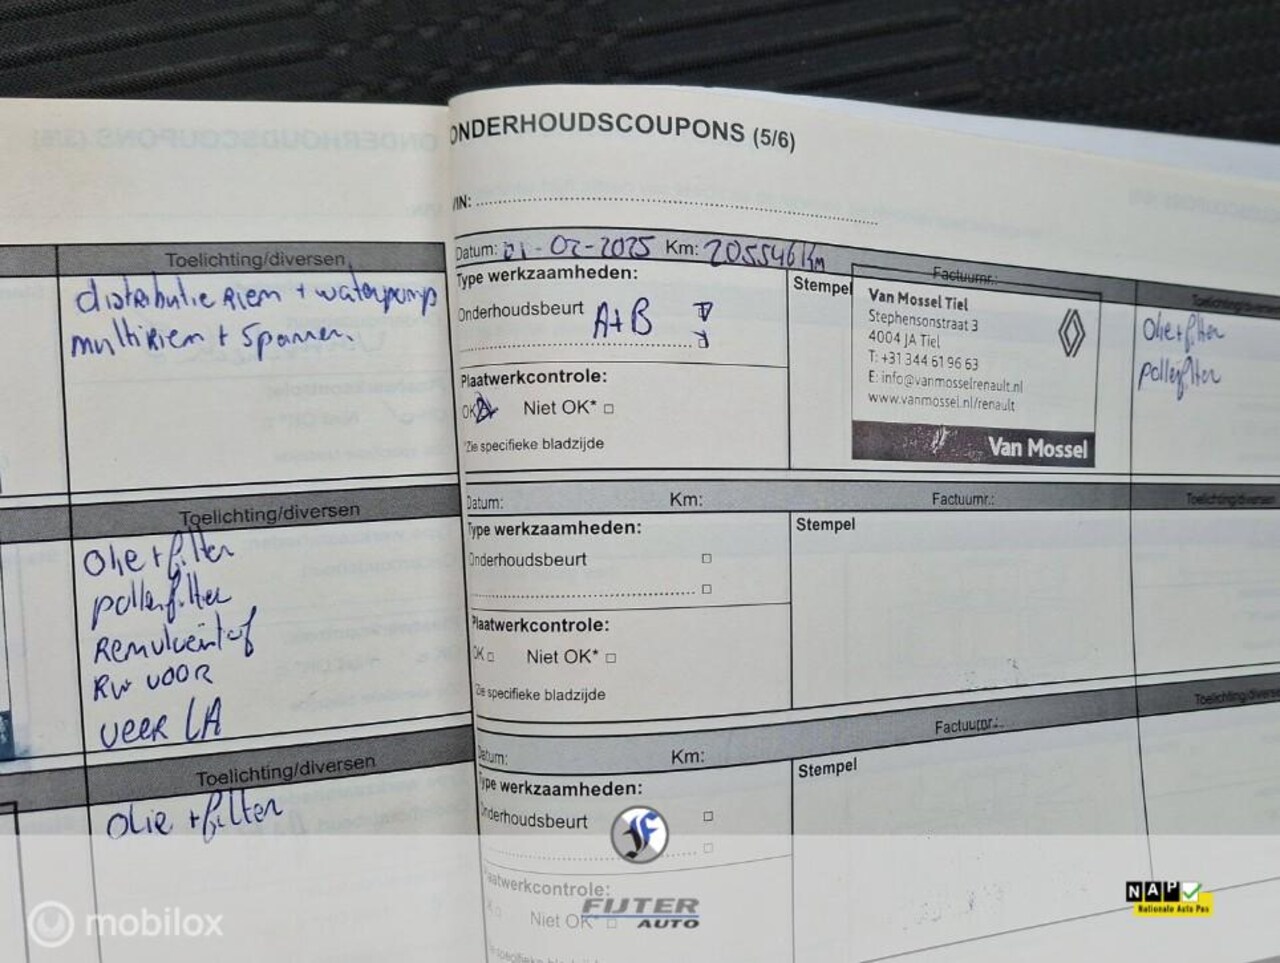 Toelichting/diversen
distributie Riem + waterpomp
multiRiem + Spanner
Toelichting/diversen
Olie + filter
pollenfilter
Remvloeistof
RW VOOR
VEER LA
Toelichting/diversen
Olie + filter
ONDERHOUDSCOUPONS (5/6)
VIN:
Datum: 01-02-2025 Km: 205546 Km Factuurnr.:
Type werkzaamheden:
Onderhoudsbeurt A+B
Plaatwerkcontrole:
OK Niet OK*
*Zie specifieke bladzijde
Stempel
Van Mossel Tiel
Stephensonstraat 3
4004 JA Tiel
T: +31 344 61 96 63
E: info@vanmosselrenault.nl
www.vanmossel.nl/renault
Van Mossel
Toelichting/diversen
Olie + filter
pollenfilter
Datum: Km: Factuurnr.: Toelichting/diversen
Type werkzaamheden:
Stempel
Onderhoudsbeurt
Plaatwerkcontrole:
OK Niet OK*
*Zie specifieke bladzijde
Datum: Km: Factuurnr.: Toelichting/diversen
Type werkzaamheden:
Stempel
Onderhoudsbeurt
Plaatwerkcontrole:
Niet OK*
*Zie specifieke bladzijde
mobilox
F
FIJTER
AUTO
NAP
Nationale Auto Pas